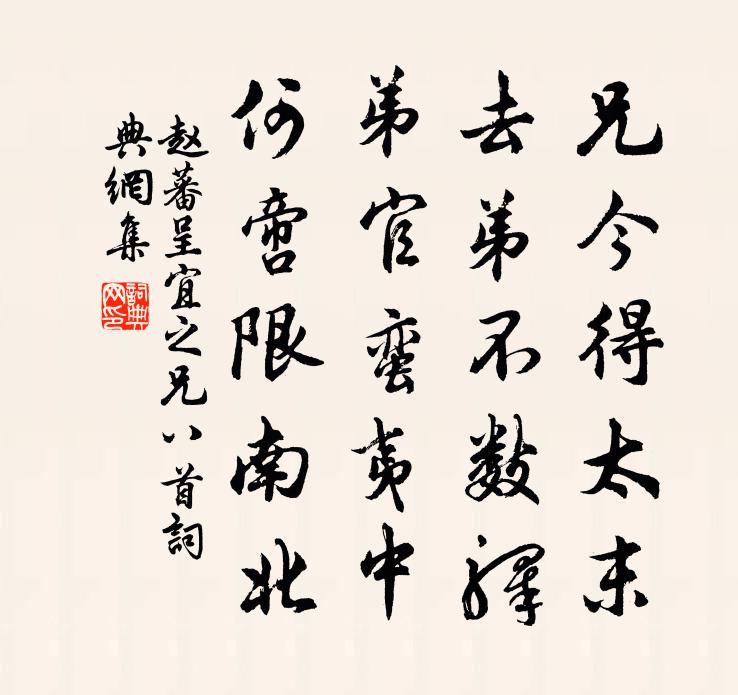 兄今得太末
去弟不數驛
弟官蛮夷中
何啻限南北
赵蕃呈宜之兄八首詞
典網集
詞典
网印